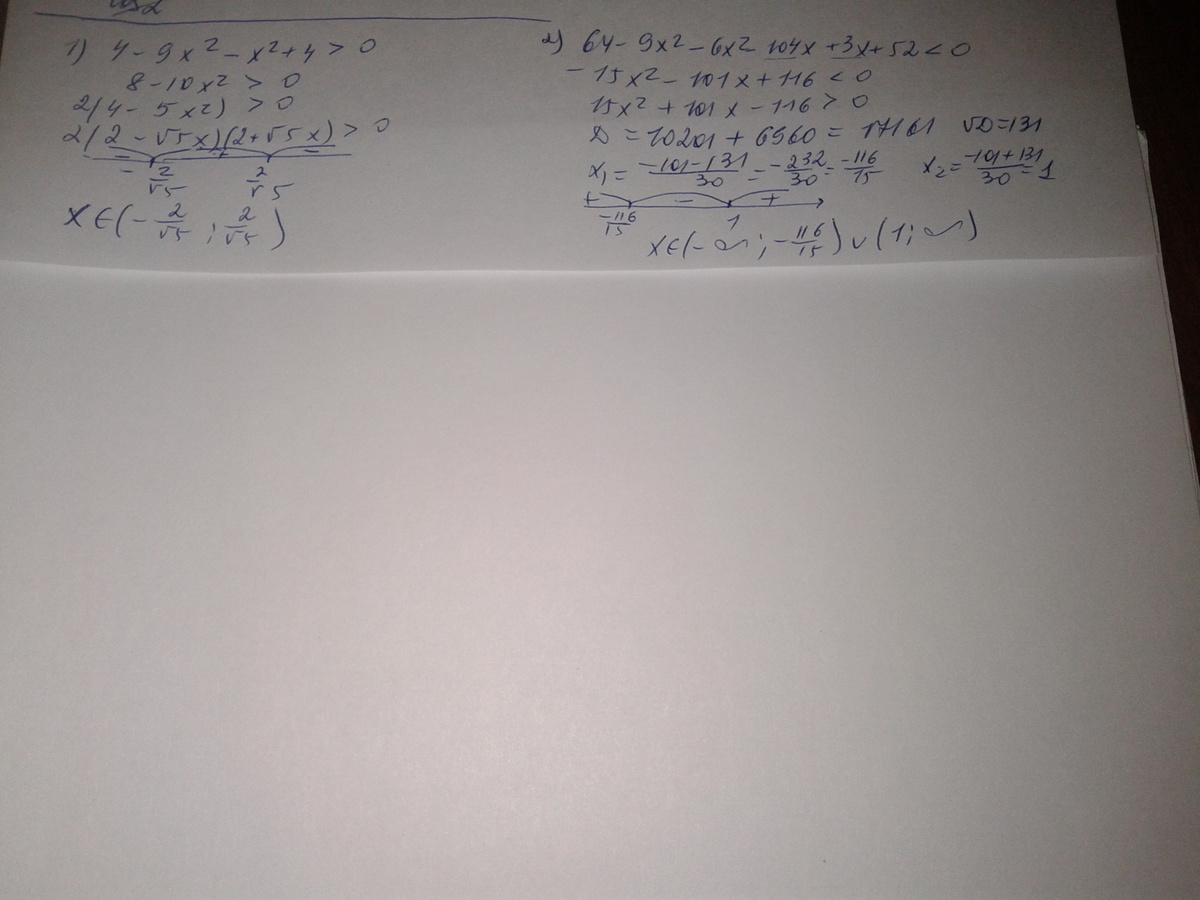 1) 4 - 9x² - x² + 4 > 0
8 - 10x² > 0
2(4 - 5x²) > 0
2(2 - √5x)(2 + √5x) > 0
- + -
-2/√5 2/√5
x ∈ (-2/√5 ; 2/√5)
2) 64 - 9x² - 6x² - 104x + 3x + 52 < 0
-15x² - 101x + 116 < 0
15x² + 101x - 116 > 0
D = 10201 + 6960 = 17161 √D = 131
x₁ = (-101-131)/30 = -232/30 = -116/15 x₂ = (-101+131)/30 = 1
+ - +
-116/15 1
x ∈ (-∞ ; -116/15) ∪ (1; ∞)